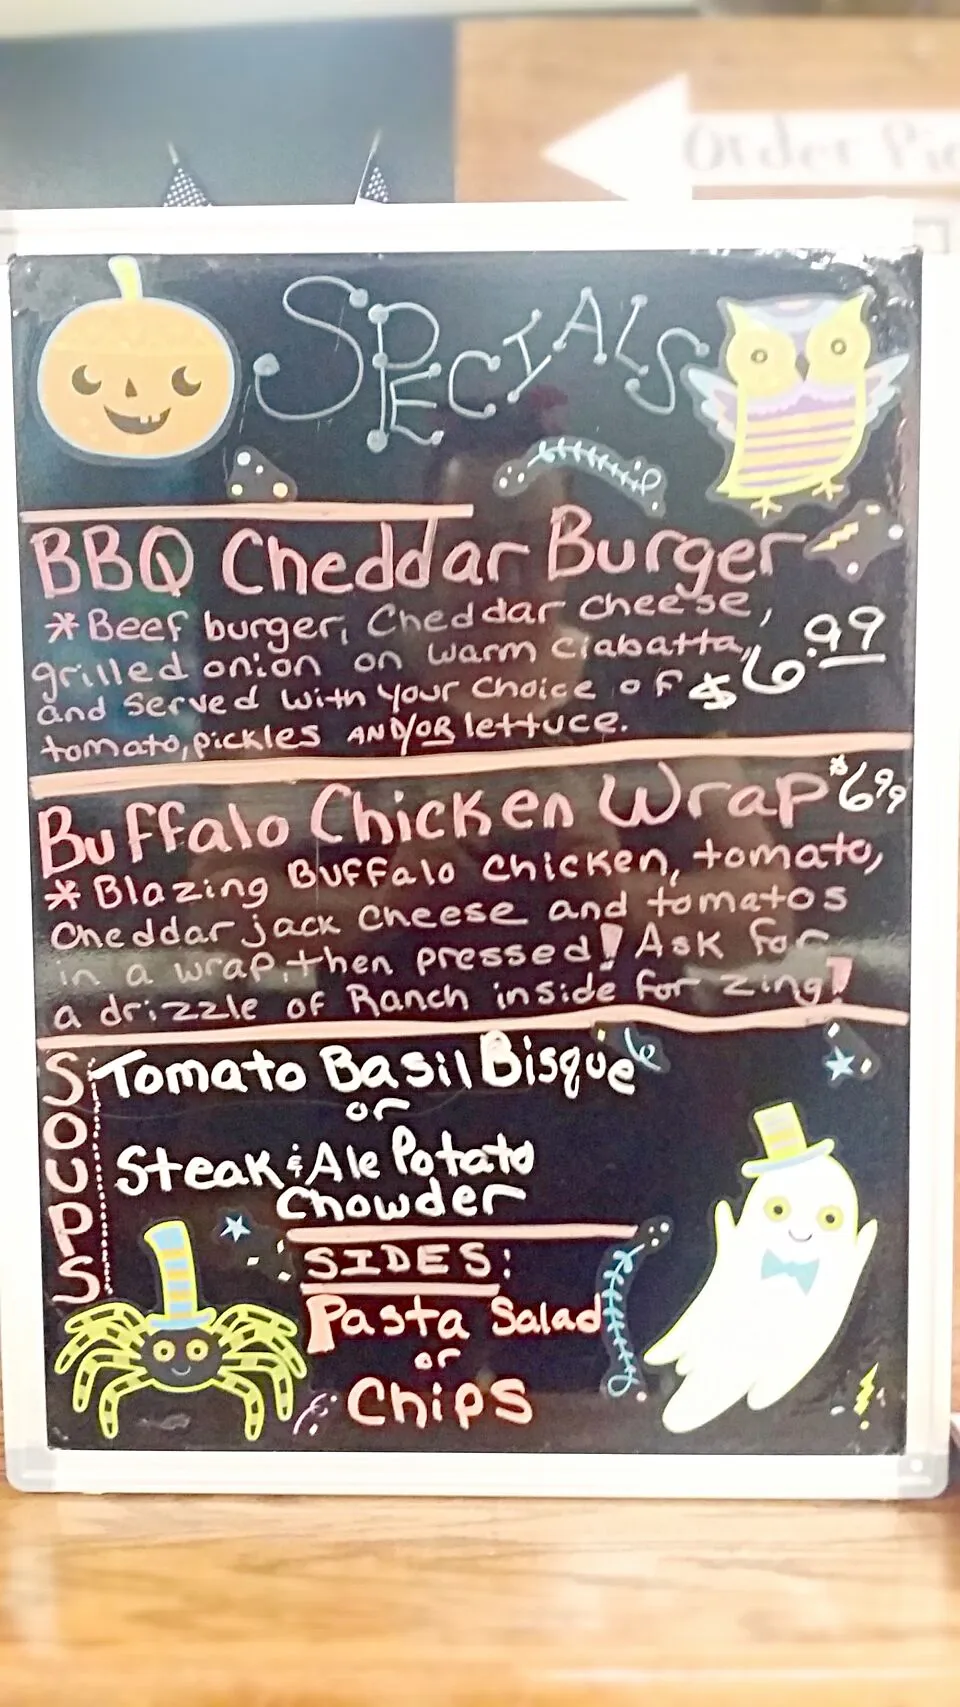 Order Pic
SPECIALS
BBQ Cheddar Burger
*Beef burger, Cheddar cheese,
grilled onion on warm ciabatta,
and served with your choice of $6.99
tomato, pickles AND/OR lettuce.
Buffalo Chicken Wrap $6.99
*Blazing Buffalo chicken, tomato,
cheddar jack cheese and tomatos
in a wrap, then pressed! Ask for
a drizzle of Ranch inside for zing!
SOUPS
Tomato Basil Bisque
or
Steak & Ale Potato
Chowder
SIDES:
Pasta Salad
or
Chips